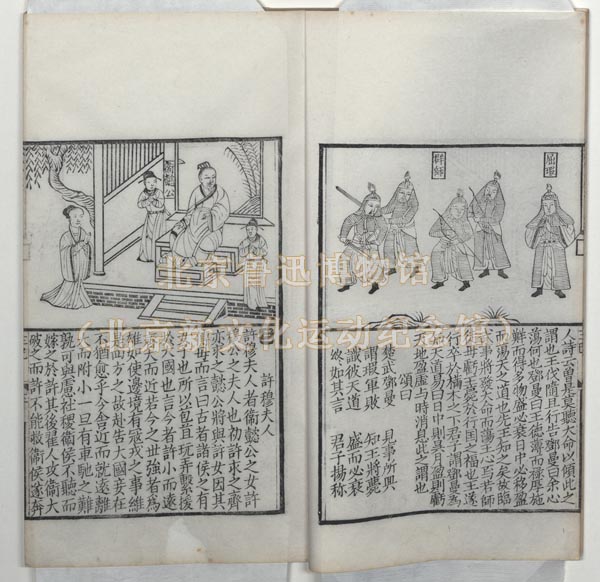 屈瑕
群師
人詩云曾是莫聽大命以傾此之
謂也王伐隨且行告鄧曼曰余心
蕩何也鄧曼曰王德薄而祿厚施
鮮而得多物盛必衰日中必移盈
而蕩天之道也先王知之矣故臨
武事將發大命而蕩王心焉若師
徒毋虧王薨於行国之福也王遂
行卒於樠木之下君子謂鄧曼為
知天道易曰日中則昃月盈則虧
天地盈虛與時消息此之謂也
頌曰
楚武鄧曼 見事所興
謂瑕軍敗 知王將薨
識彼天道 盛而必衰
終如其言 君子揚稱
許穆夫人
許穆夫人者衞懿公之女許
穆公之夫人也初許求之齊
亦求之懿公將與許女因其
傅母而言曰古者諸侯之有
女子也所以苞苴玩弄繫援
於大國也言今者許小而遠
齊大而近若今之世強者爲
雄如使邊境有寇戎之事維
是四方之故赴告大國妾在
不猶愈乎今舍近而就遠離
大而附小一旦有車馳之難
孰可與慮社稷衞侯不聽而
嫁之於許其後翟人攻衞大
破之而許不能救衞侯遂奔
北京鲁迅博物馆
（北京新文化运动纪念馆）